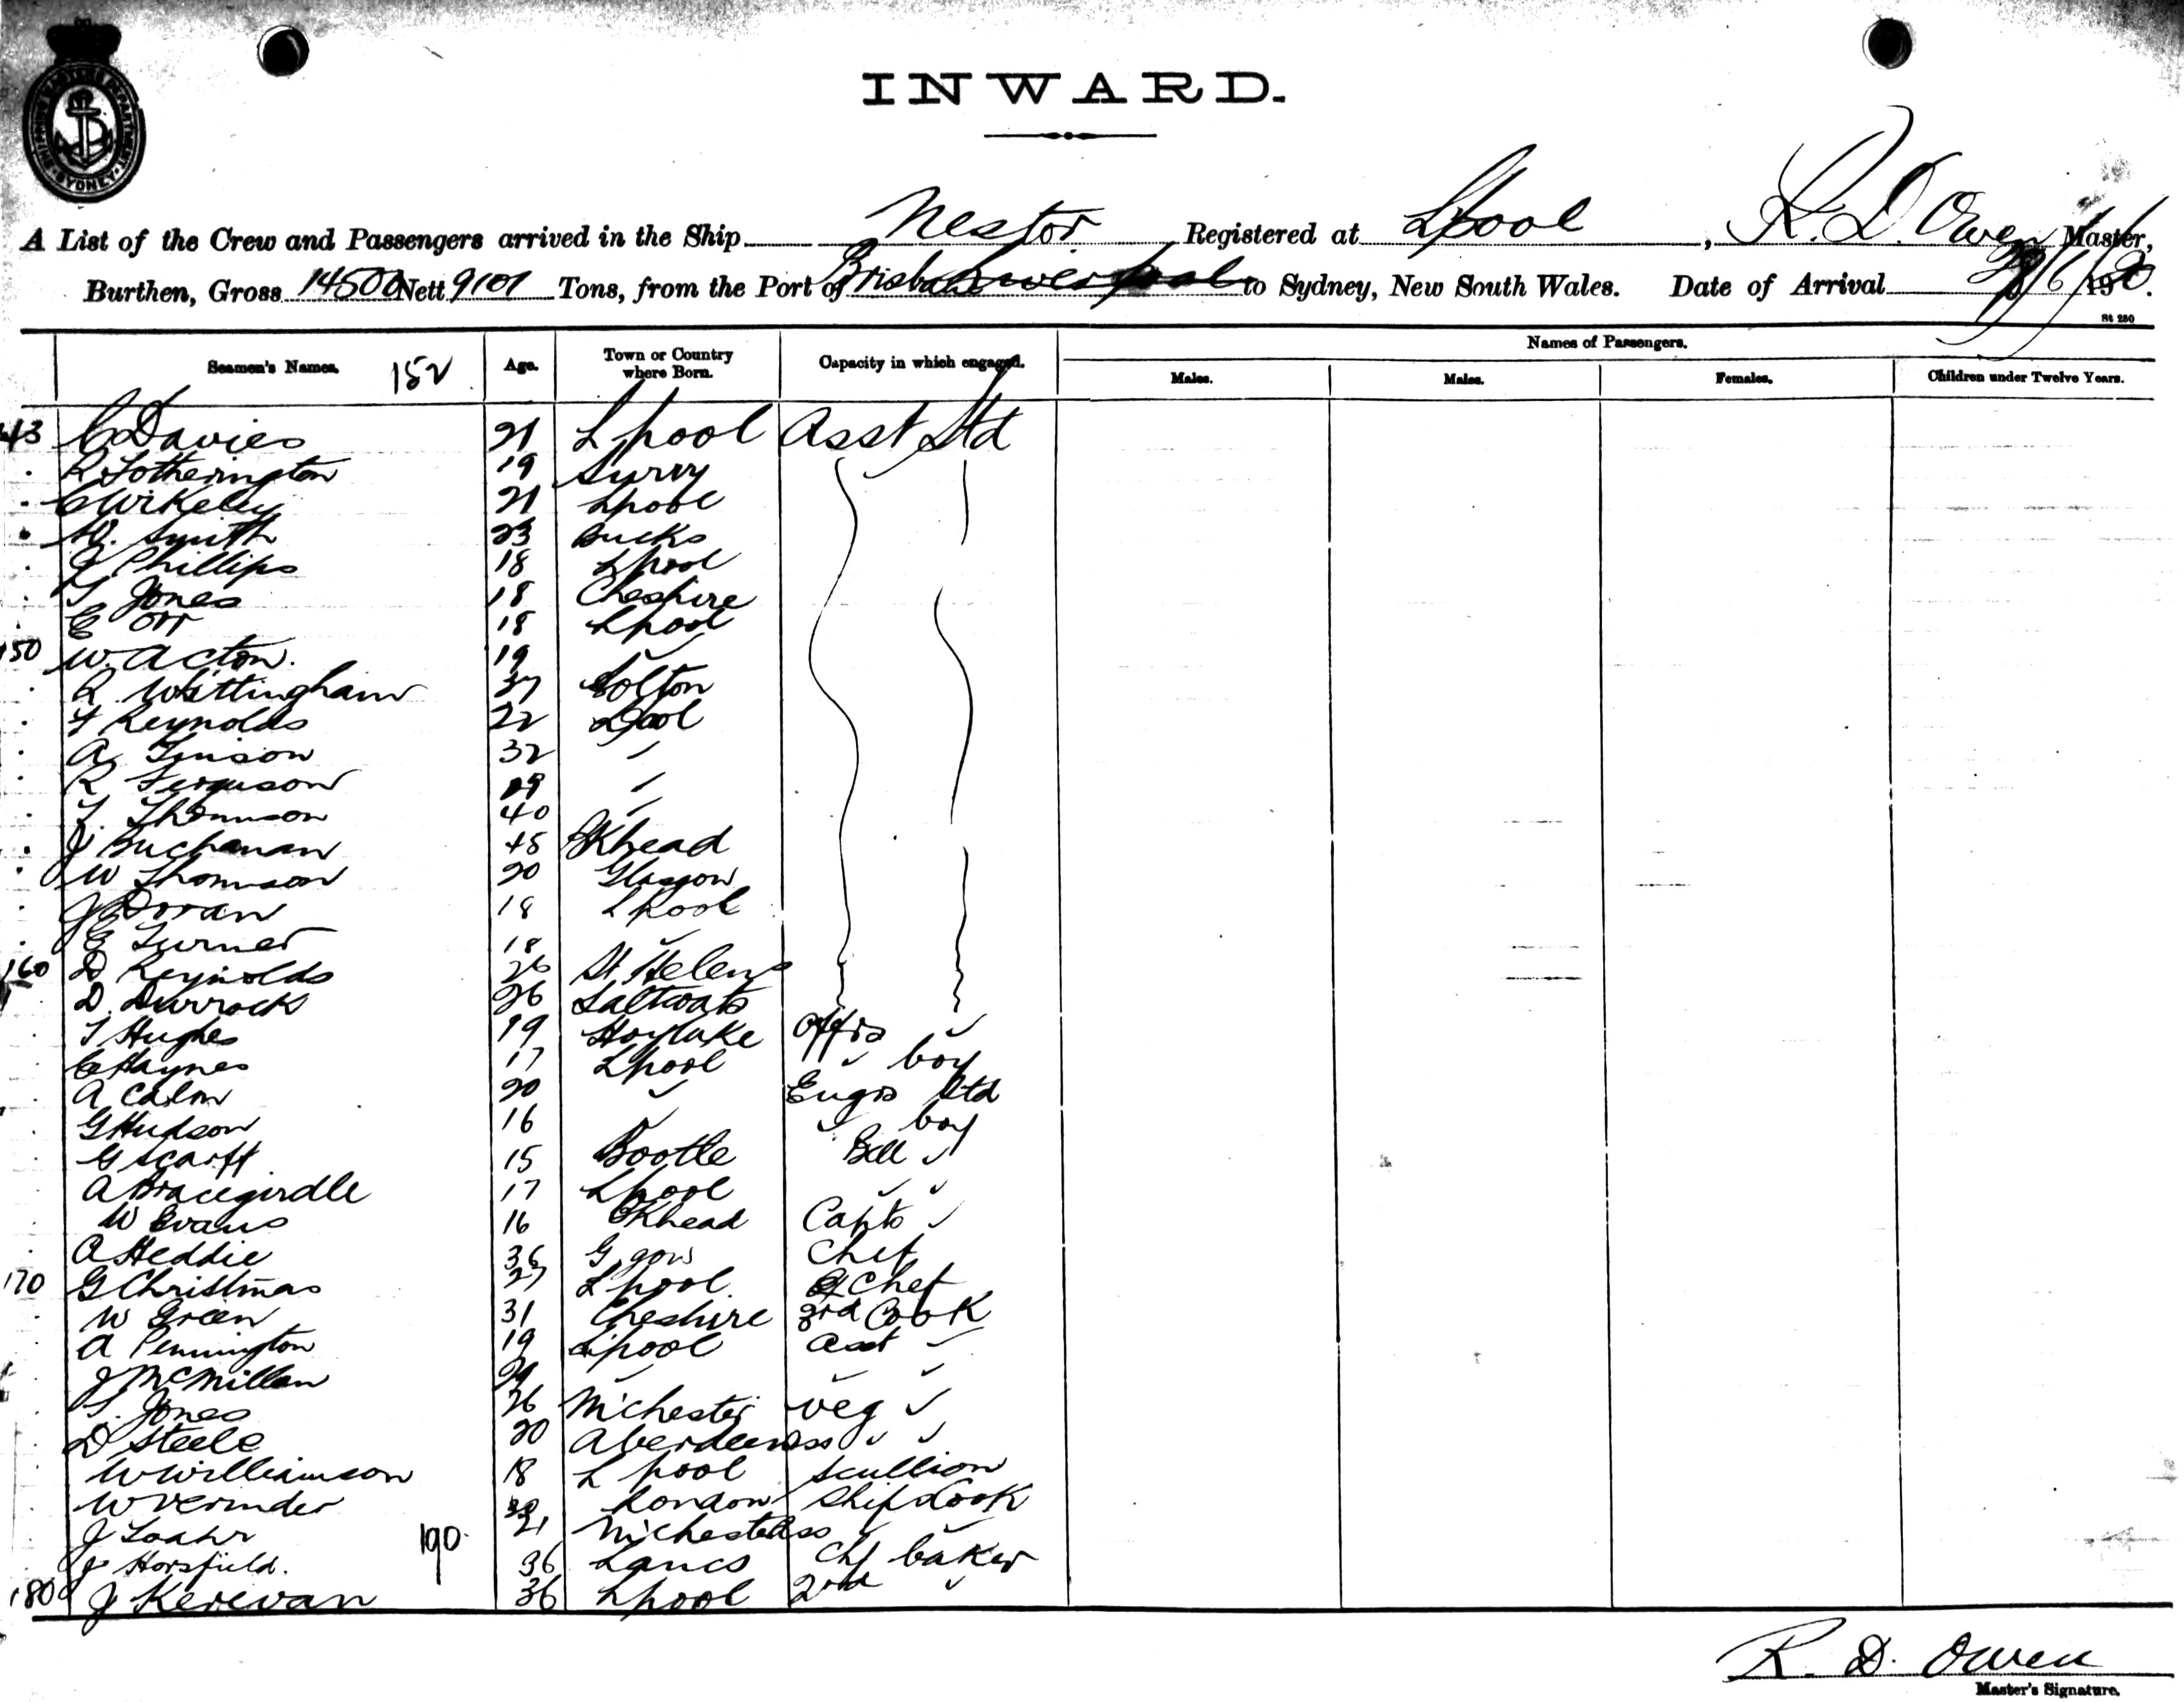 SYDNEY
INWARD.
A List of the Crew and Passengers arrived in the Ship Nestor, Registered at Lpool, R. D. Owen Master,
Burthen, Gross 14500 Nett 9101 Tons, from the Port of to Sydney, New South Wales. Date of Arrival
St 250
Seamen's Names. 152 Age. Town or Country where Born. Capacity in which engaged. Names of Passengers.
Males. Males. Females. Children under Twelve Years.
143 C Davies 21 Lpool Asst Std
R Fotherington 19 Surry
21 Lpool
W. Smith 23 Bucks
J Phillips 18 Lpool
T Jones 18 Cheshire
E Orr 18 Lpool
150 W. Acton. 19 "
R Whittingham 37 Bolton
F Reynolds 22 Lpool
A 32 "
R Ferguson "
T. Thomson 40 "
J Buchanan 45 Bkhead
W Thomson 20 Glasgow
J Doran 18 Lpool
E Turner 18 "
160 D Reynolds 26 St Helens
D. Durrock 26 Saltcoats
T Hughes 19 Hoylake Offrs "
C Haynes 17 Lpool " boy
A 20 " Engrs Std
G Hudson 16 " " boy
G Scarff 15 Bootle Bell "
A Bracegirdle 17 Lpool " "
W Evans 16 Bkhead Capts "
A Heddie 36 G.gow Chef
170 G Christmas 27 Lpool 2 Chef
W Green 31 Cheshire 3rd Cook
A Pennington 19 Lpool Asst "
J McMillan " " "
T. Jones 26 M'chester veg "
D Steele 20 Aberdeen ass " "
W Williamson 18 L pool Scullion
W Verinder London Ships Cook
J 21 M'chester ass " "
J Horsfield. 190 36 Lancs Chf baker
180 J Kerevan 36 Lpool 2nd "
R. D. Owen
Master's Signature.